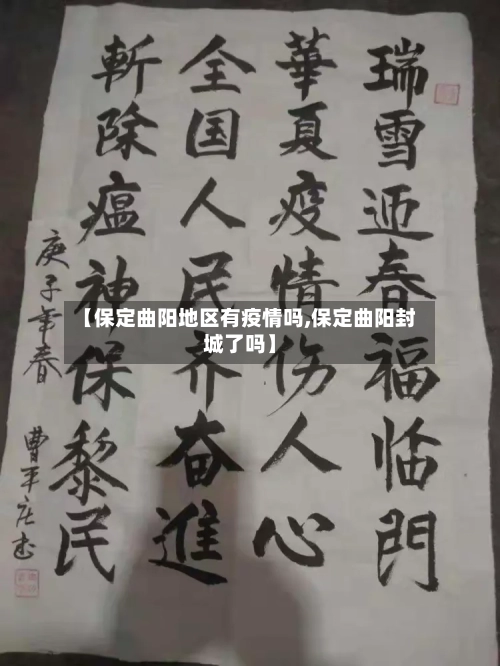 瑞雪迊春福临門
華夏疫情伤人心
全国人民齐奋進
斬除瘟神保黎民
庚子年春
曹平庄书
【保定曲阳地区有疫情吗,保定曲阳封
城了吗】